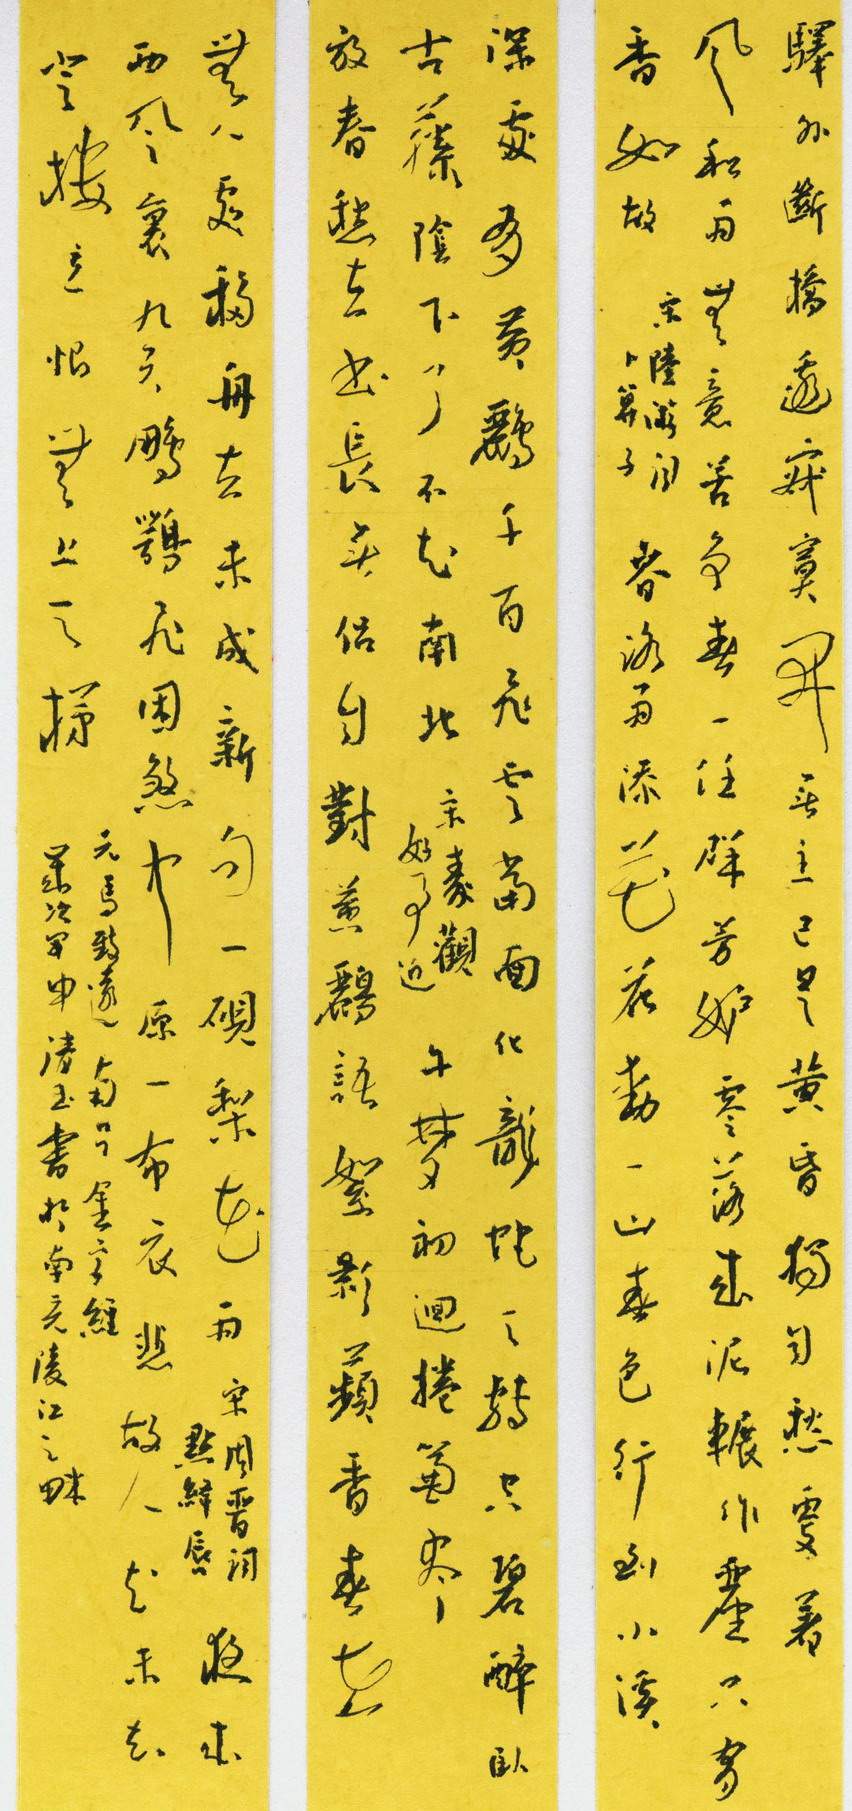 驛外斷橋邊寂寞開無主已是黃昏獨自愁更著
風和雨無意苦爭春一任群芳妒零落成泥輾作塵只有
香如故
宋陸游詞
卜算子
春路雨添花花動一山春色行到小溪
深處有黃鸝千百飛雲當面化龍蛇夭轉空碧醉臥
古藤陰下了不知南北
宋秦觀
好事近
午夢初迴捲簾盡
放春愁去晝長無侶自對黃鸝語絮影蘋香春在
無人處移舟去未成新句一硯梨花雨
宋周晉詞
點絳唇
夜來
西風裏九天鵬鶚飛困煞中原一布衣悲故人知未知
登樓意恨無上天梯
元馬致遠南呂金字經
歲次甲申清玉書於南充陵江之畔